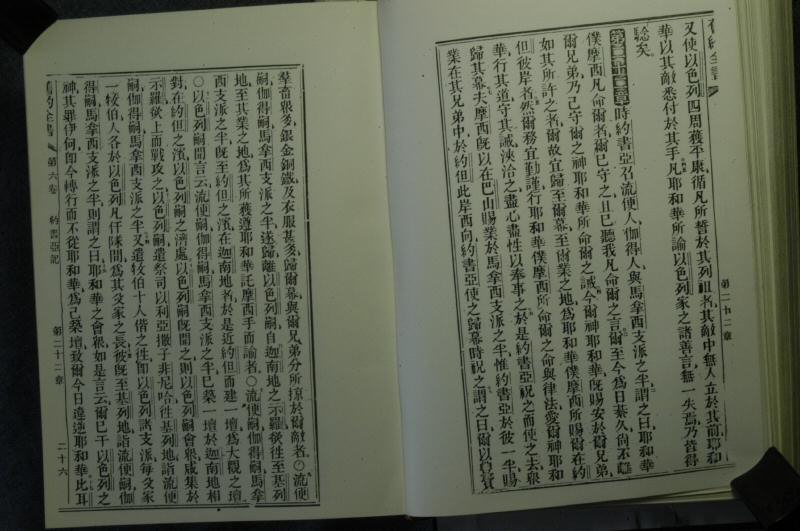 又使以色列四周獲平康循凡所誓於其列祖者其敵中無人立於其前耶和
華以其敵悉付於其手凡耶和華所諭以色列家之諸善言無一失焉乃皆得
騐矣
第二十二章 時約書亞召流便人伽得人與馬拿西支派之半謂之曰耶和華
僕摩西凡命爾者爾已守之且已聽我凡命爾之言爾至今為日綦久尚不離
爾兄弟乃已守爾之神耶和華所命爾之誡今爾神耶和華既賜安於爾兄弟
如其所許之者爾故宜歸至爾幕至爾業之地為耶和華僕摩西所賜爾在約
但彼岸者然爾務宜勤謹行耶和華僕摩西所命爾之命與律法愛爾神耶和
華行其道守其誡浹洽之盡心盡性以奉事之於是約書亞祝之而使之去眾
歸其幕夫摩西既以在巴山賜業於馬拿西支派之半惟約書亞於彼一半賜
業在其兄弟中於約但此岸西向約書亞使之歸幕時祝之謂之曰爾以貨財
羣畜眾多銀金銅鐵及衣服甚多歸爾幕與爾兄弟分所掠於爾敵者○流便
嗣伽得嗣馬拿西支派之半遂歸離以色列嗣自迦南地之示羅欲往至基列
地至其業之地為其所獲遵耶和華託摩西手而諭者○流便嗣伽得嗣馬拿
西支派之半既至約但之濱在迦南地者於是近約但而建一壇為大觀之壇
○以色列嗣聞言云流便嗣伽得嗣馬拿西支派之半已築一壇於迦南地相
對在約但之濱以色列嗣之濟處以色列嗣既聞之則以色列嗣會眾咸集於
示羅欲上而戰攻之以色列嗣遣祭司以利亞撒子非尼哈徃基列地詣流便
嗣伽得嗣馬拿西支派之半又遣牧伯十人偕之徃卽以色列諸支派每父家
一牧伯人各於以色列凡仟隊間為其父家之長彼既至基列地詣流便嗣伽
得嗣馬拿西支派之半則謂之曰耶和華之會眾如是言云爾已干以色列之
神其罪伊何卽今轉行而不從耶和華為己築壇致爾今日違逆耶和華比耳
舊約全書 第六卷 約書亞記 第二十二章 二十六
第二十二章